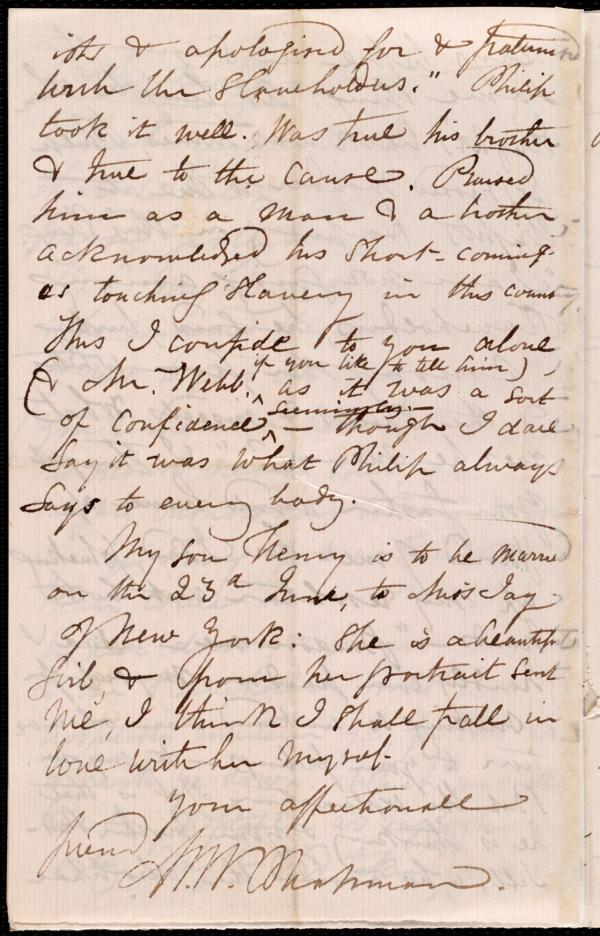 ists & apologised for & fraternised
with the Slaveholders." Philip
took it well. Was true his brother
& true to the cause. Praised
him as a man & a brother
acknowledged his short-coming
as touching Slavery in this country.
This I confide to you alone,
if you like to tell him)
(& Mr. Webb, as it was a sort
seemingly —
of confidence, — though I dare
say it was what Philip always
says to every body.
My son Henry is to be married
on the 23d June, to Miss Jay
of New York: She is a beautiful
girl, & from her portrait sent
me, I think I shall fall in
love with her myself.
Your affectionate
friend
M. W. Chapman.